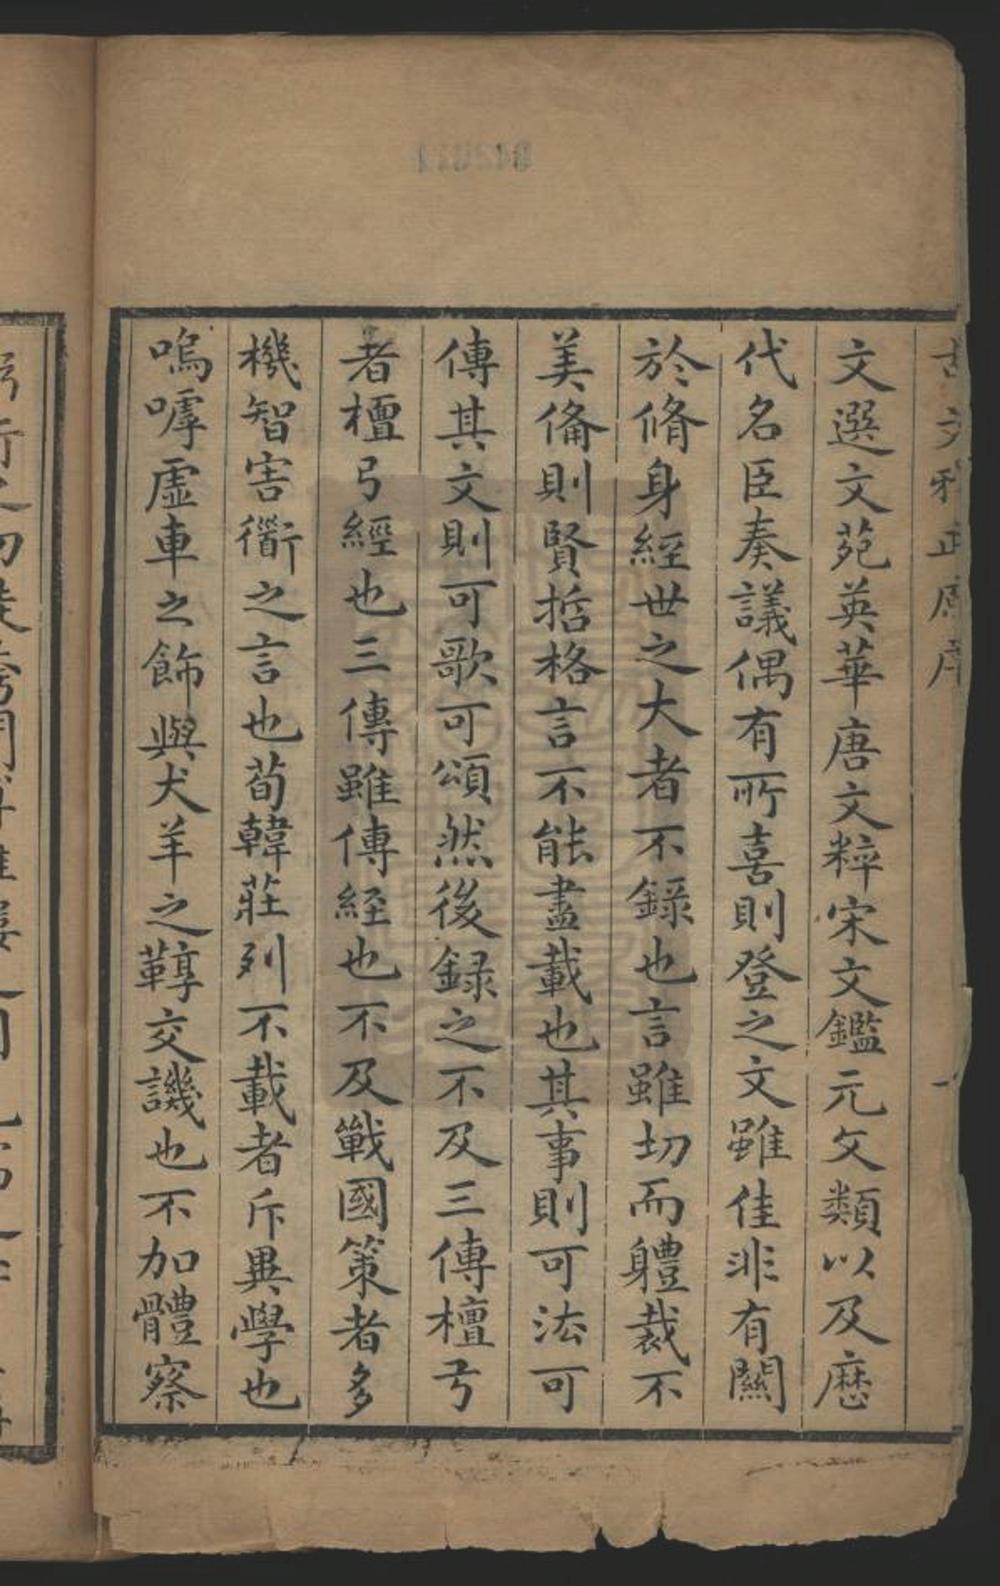 古文雅正原序
文選文苑英華唐文粹宋文鑑元文類以及歷
代名臣奏議偶有所喜則登之文雖佳非有關
於脩身經世之大者不錄也言雖切而軆裁不
美俻則賢哲格言不能盡載也其事則可法可
傳其文則可歌可頌然後録之不及三傳檀弓
者檀弓經也三傳雖傳経也不及戰國策者多
機智害衟之言也荀韓莊列不載者斥異學也
嗚嘑虛車之飾與犬羊之鞹交譏也不加體察